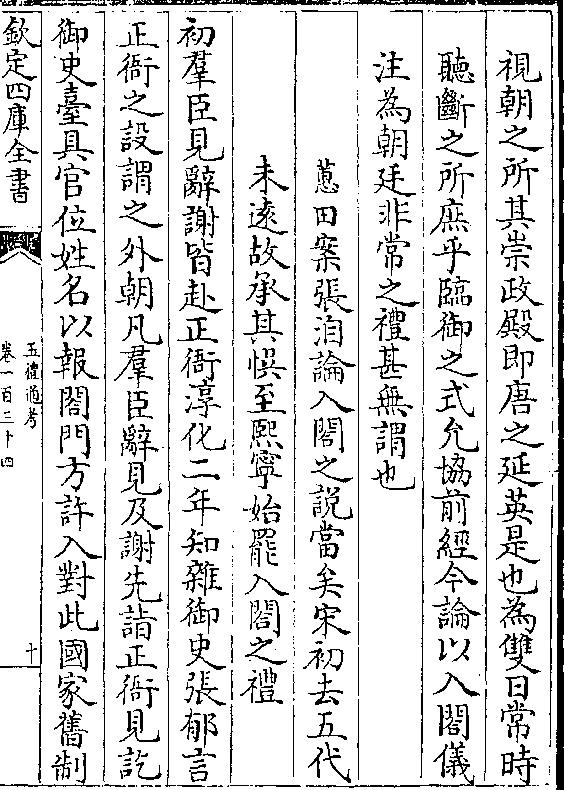 視朝之所其崇政殿即唐之延英是也為雙日常時
聽斷之所庶乎臨御之式允協前經今論以入閤儀
注為朝廷非常之禮甚無謂也
蕙田案張洎論入閤之說當矣宋初去五代
未遠故承其悞至熙寧始罷入閤之禮
初羣臣見辭謝皆赴正衙淳化二年知雜御史張郁言
正衙之設謂之外朝凡羣臣辭見及謝先詣正衙見訖
御史臺具官位姓名以報閤門方許入對此國家舊制
欽定四庫全書
五禮通考
卷一百三十四
十